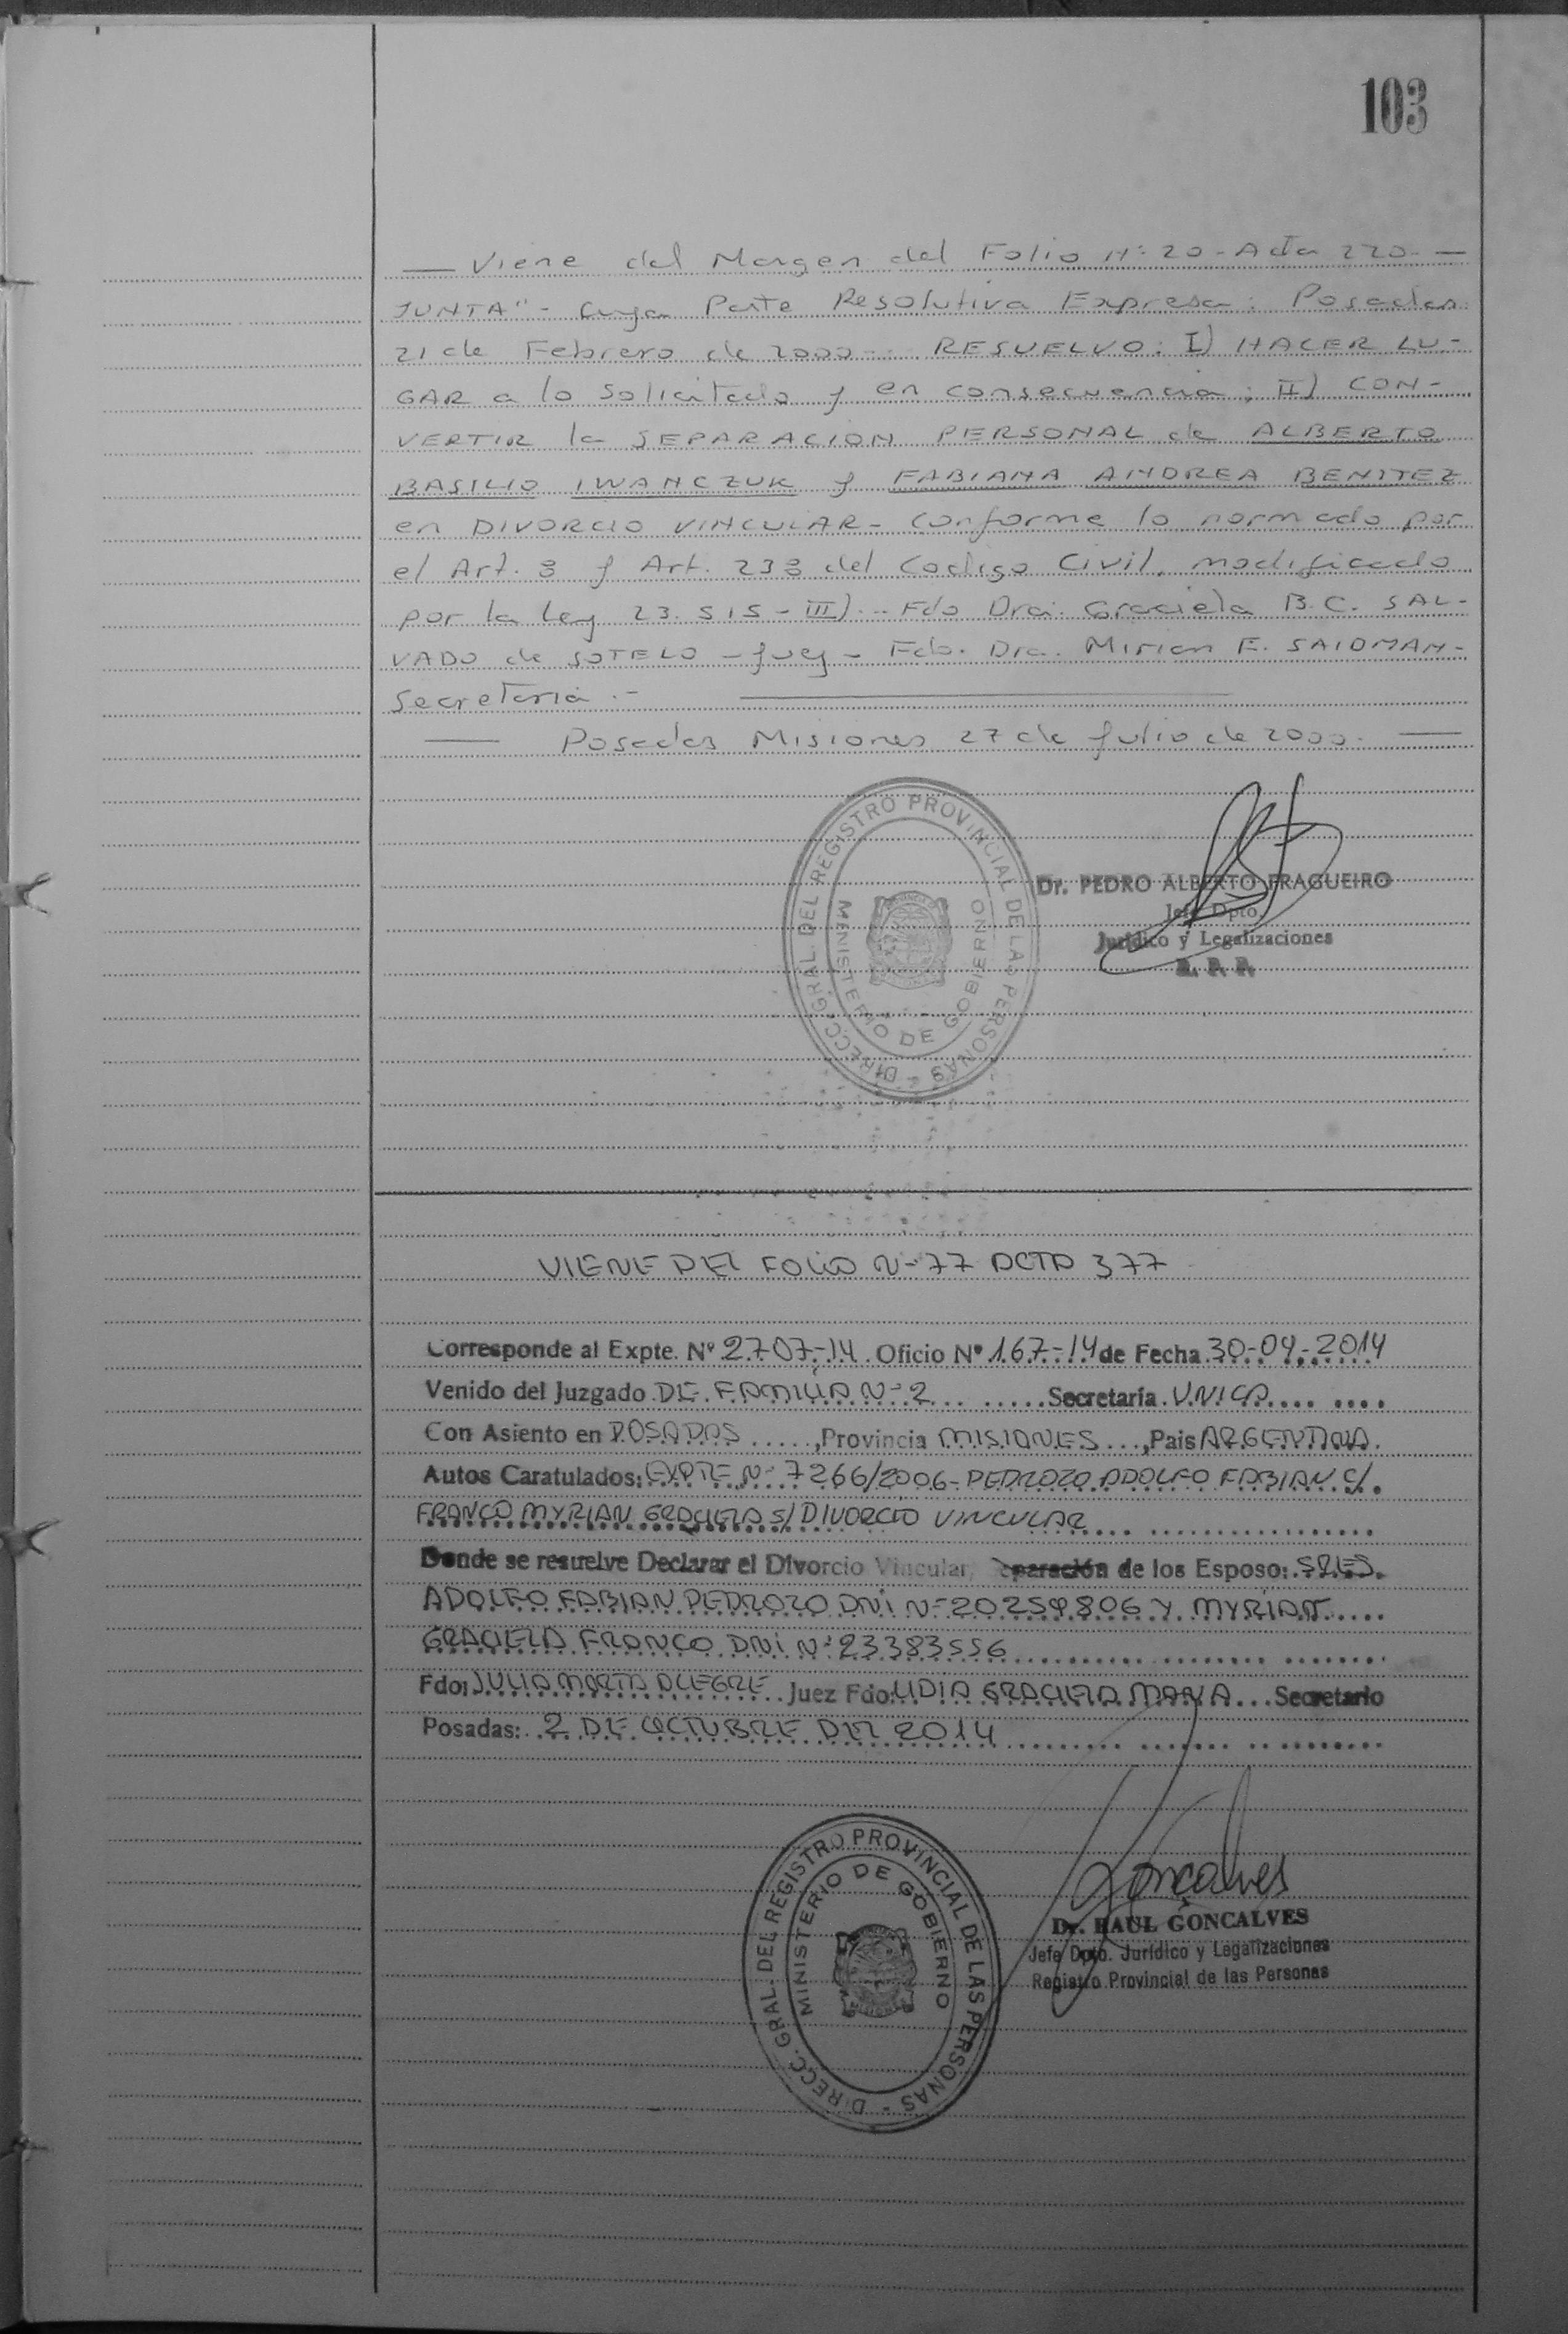 103
— Viene del Margen del Folio Nº 20 - Acta 220. —
JUNTA" - Cuya Parte Resolutiva Expresa: Posadas
21 de Febrero de 2000... RESUELVO: I) HACER LU-
GAR a lo Solicitado y en consecuencia; II) CON-
VERTIR la SEPARACION PERSONAL de ALBERTO
BASILIO IWANCZUK y FABIANA ANDREA BENITEZ
en DIVORCIO VINCULAR - Conforme lo normado por
el Art. 8 y Art. 238 del Codigo Civil, modificado
por la Ley 23.515 - III)... Fdo Dra. Graciela B.C. SAL-
VADO de SOTELO - Juez - Fdo. Dra. Mirian E. SAIDMAN -
Secretaria .-
— Posadas Misiones 27 de Julio de 2000. —
DIRECC. GRAL. DEL REGISTRO PROVINCIAL DE LAS PERSONAS -
MINISTERIO DE GOBIERNO
Dr. PEDRO ALBERTO FRAGUEIRO
Jefe Dpto.
Jurídico y Legalizaciones
R. P. P.
VIENE DEL FOLIO Nº 77 ACTA 377
Corresponde al Expte. Nº 2707-14. Oficio Nº 167-14 de Fecha 30-04-2014
Venido del Juzgado DE FAMILIA Nº 2 Secretaría UNICA
Con Asiento en POSADAS, Provincia MISIONES, Pais ARGENTINA.
Autos Caratulados: EXPTE Nº 7266/2006 - PEDROZO ADOLFO FABIAN C/
FRANCO MYRIAN GRACIELA S/ DIVORCIO VINCULAR
Donde se resuelve Declarar el Divorcio Vincular, Separación de los Esposo: SRES.
ADOLFO FABIAN PEDROZO DNI Nº 20259806 Y MYRIAN
GRACIELA FRANCO DNI Nº 23383556
Fdo: JULIA MARTA ALEGRE Juez Fdo: LIDIA GRACIELA MANA Secretario
Posadas: 2 DE OCTUBRE DEL 2014
DIRECC. GRAL. DEL REGISTRO PROVINCIAL DE LAS PERSONAS -
MINISTERIO DE GOBIERNO
MISIONES
Goncalves
Dr. RAUL GONCALVES
Jefe Dpto. Jurídico y Legalizaciones
Registro Provincial de las Personas